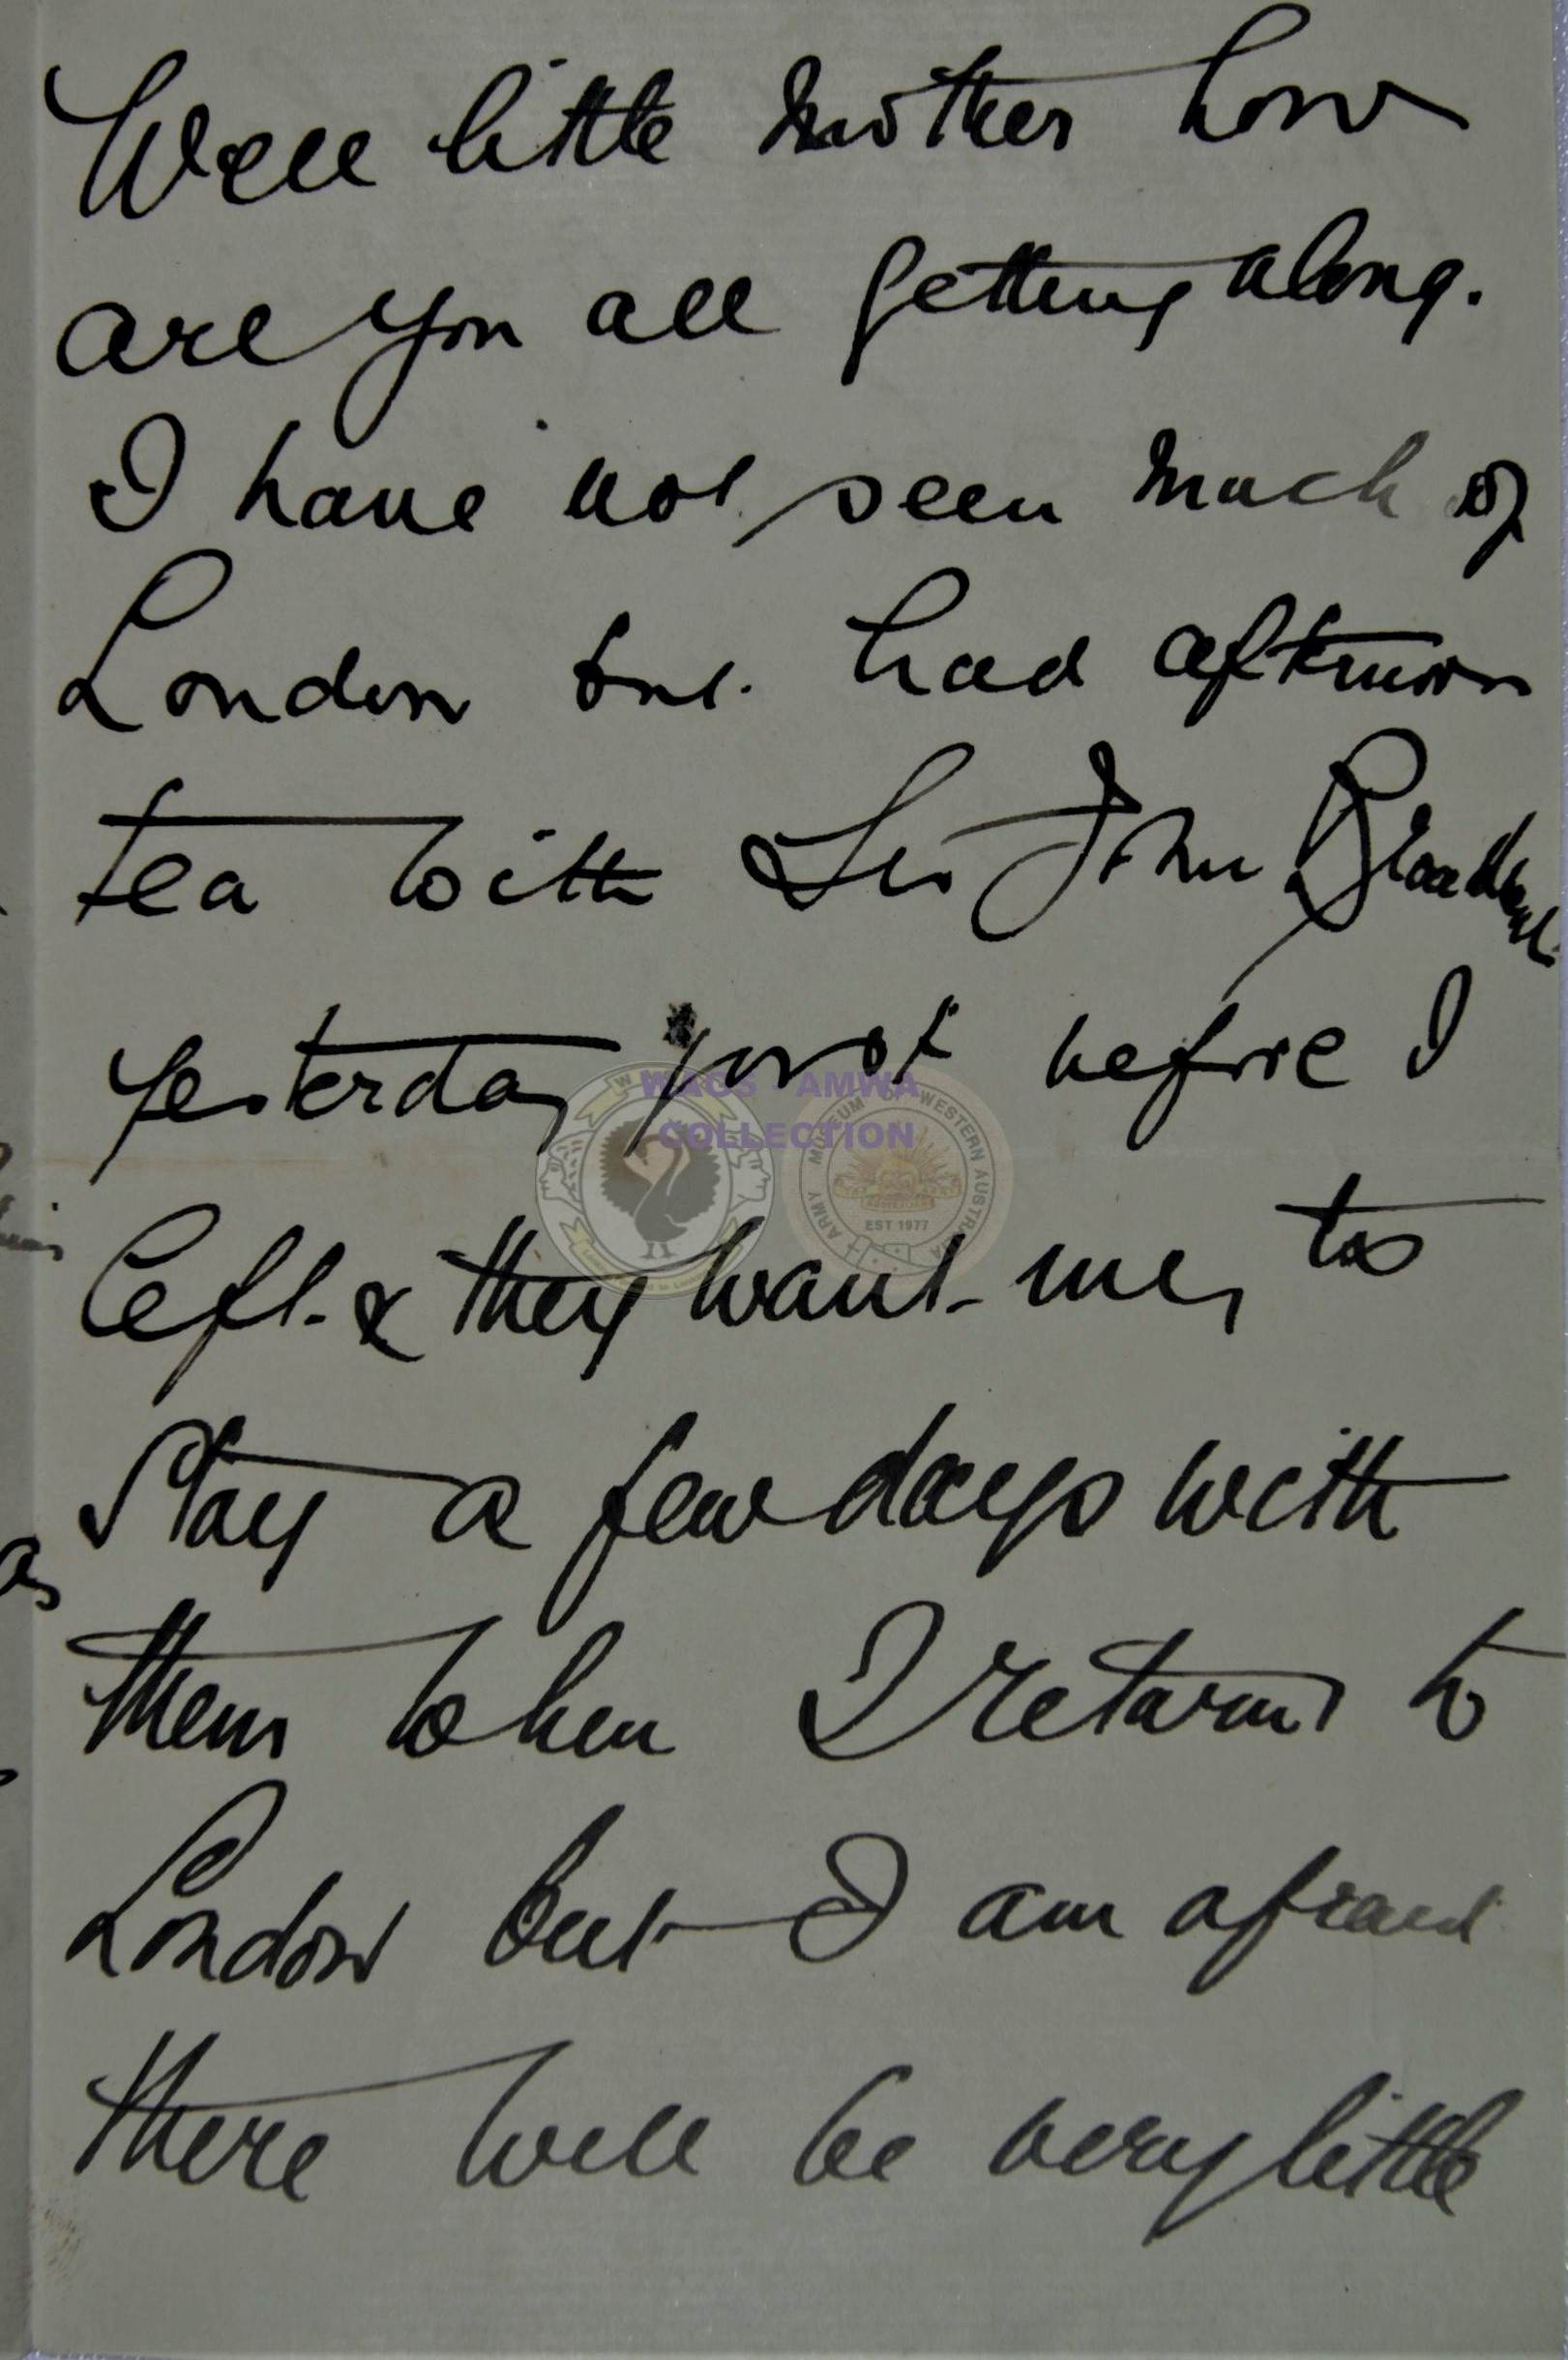 Well little Mother how
are you all getting along.
I have not seen much of
London but had afternoon
tea with Sir John Broadbent
yesterday just before I
left & they want me, to
stay a few days with
them when I return to
London but I am afraid
there will be very little
WAGS - AMWA
COLLECTION
ARMY MUSEUM OF WESTERN AUSTRALIA
EST 1977
as